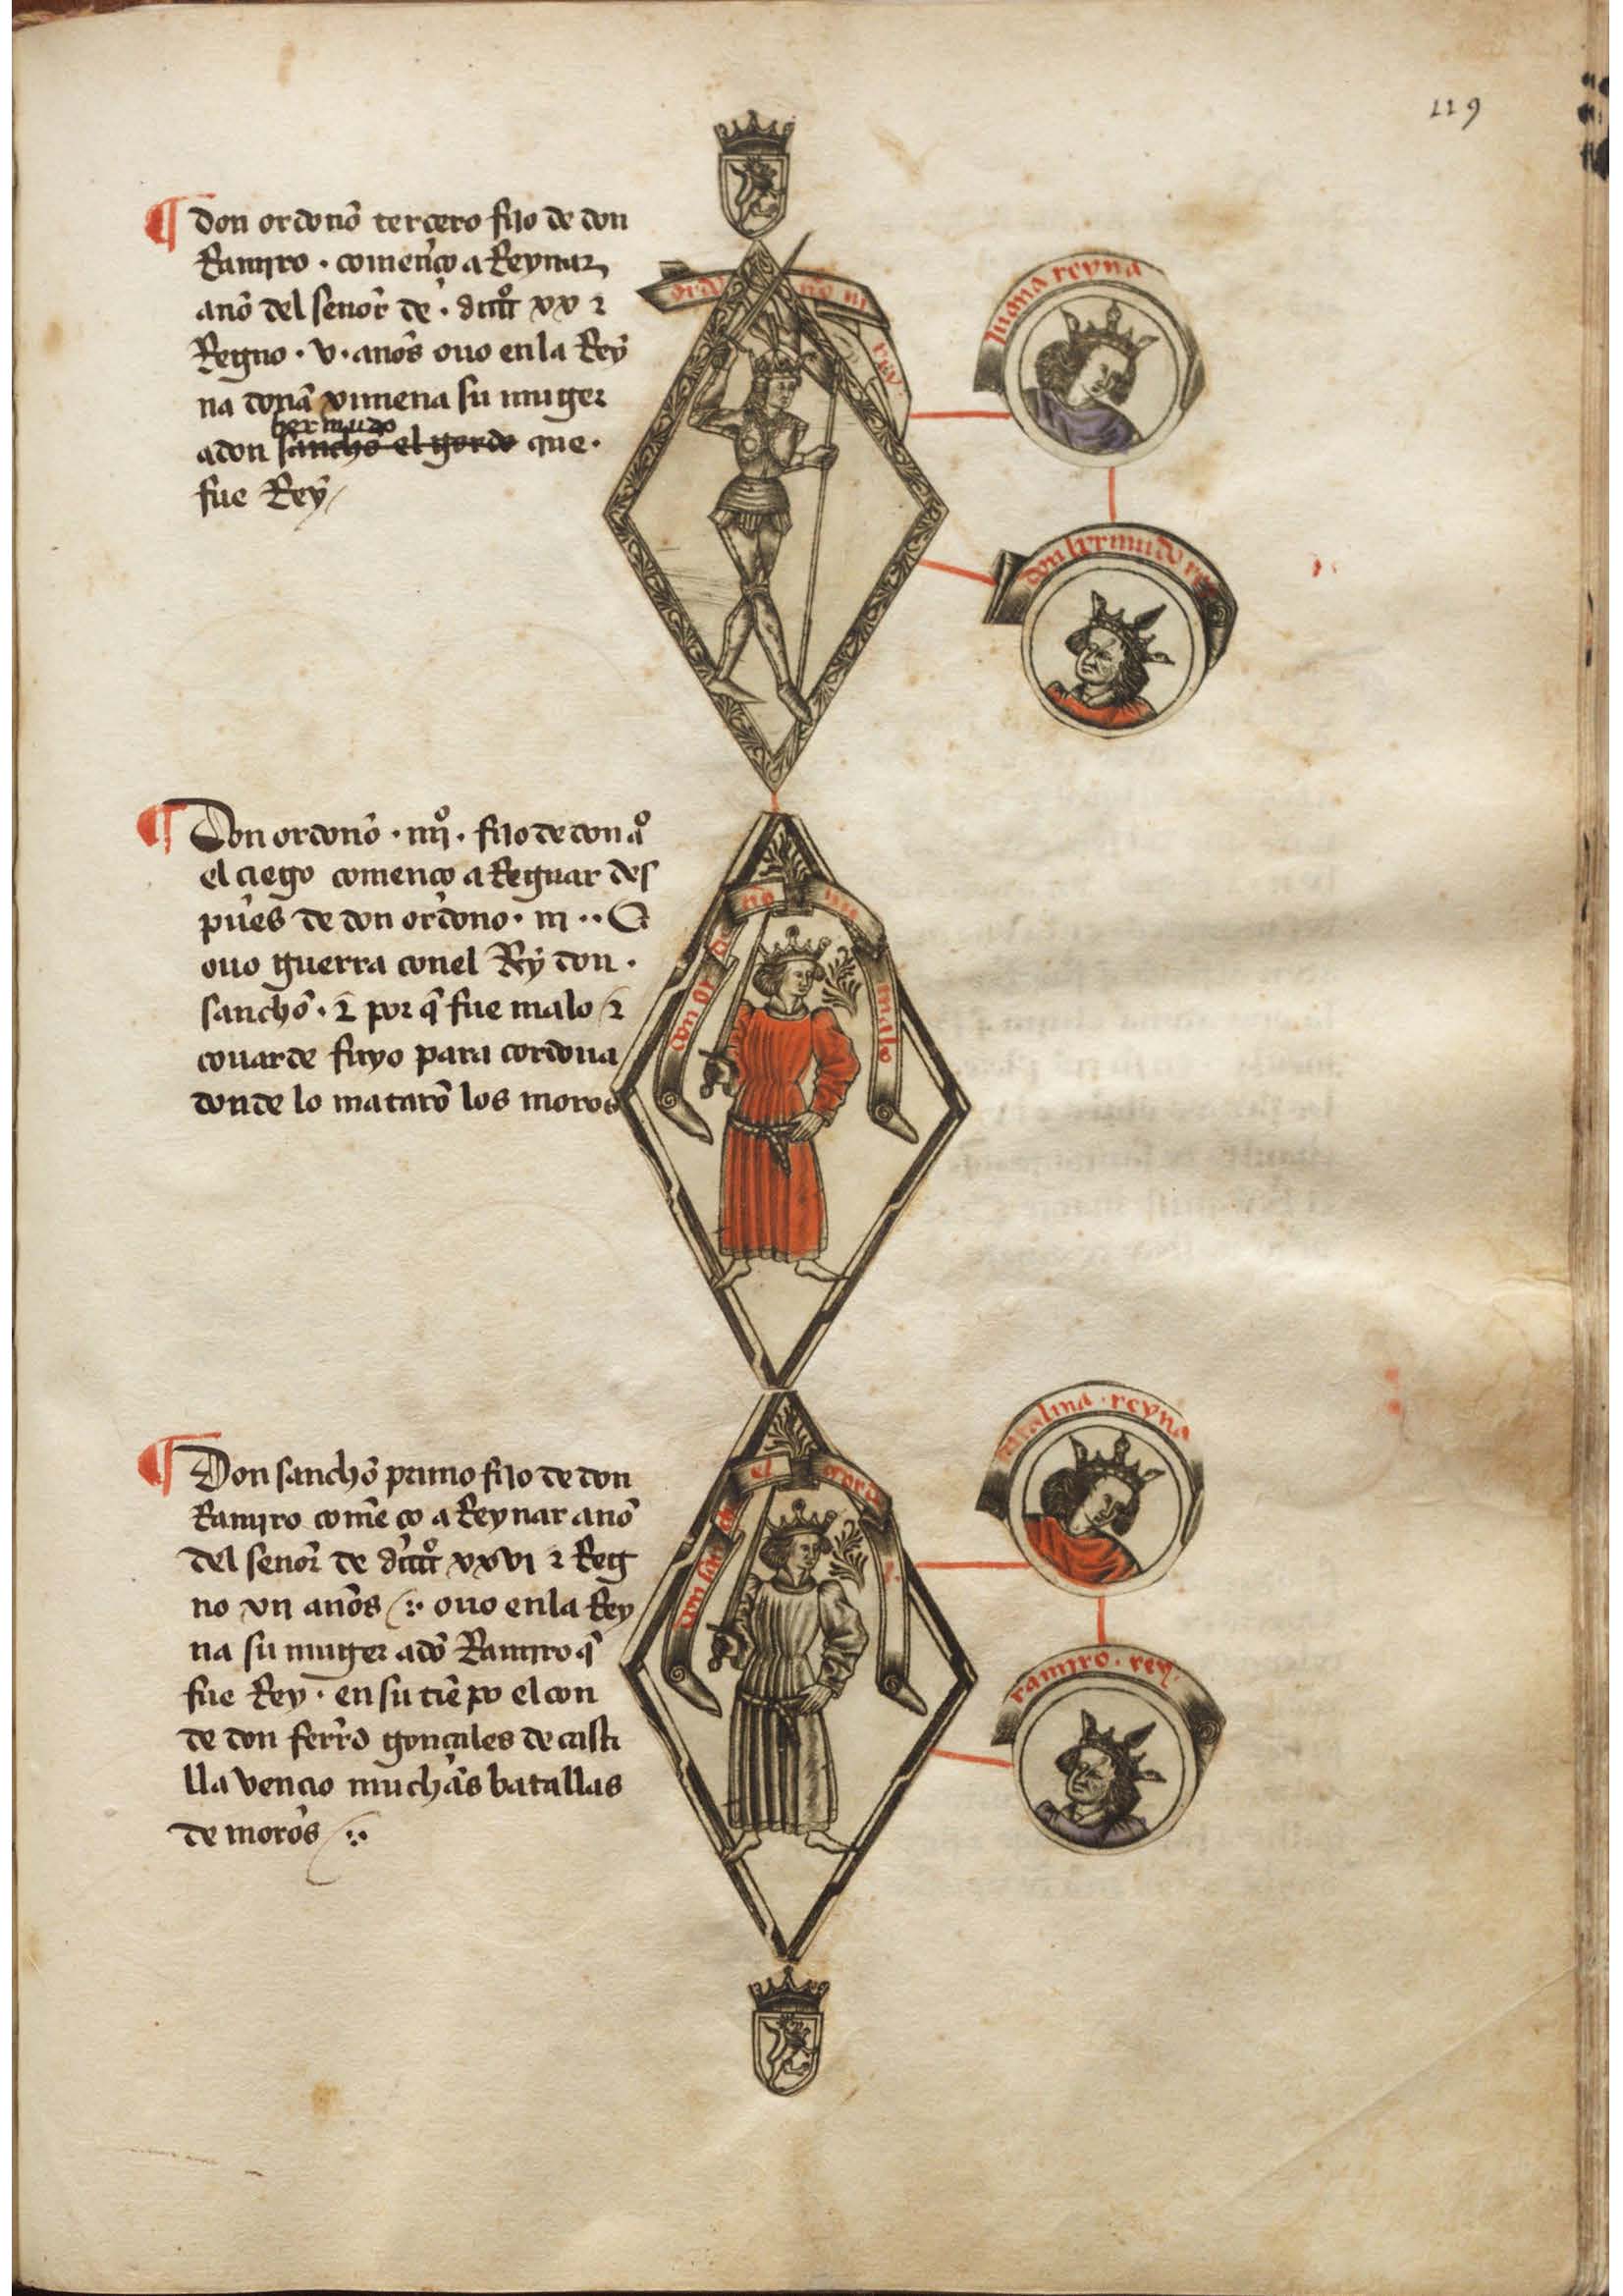 119
don ordono᷈ tercero fijo de don
Ramiro · començo a Reynar
ano᷈ del seno᷈r de · dcccc° xx τ
Regno · v · ano᷈s ouo en la Rey
na dona᷈ ximena su muger
bermudo
a don sancho el gordo que ·
fue Rey /
ordo no iii rey
juana reyna
don bermudo rey
Don ordono᷈ · iiij° · fijo de don a°
el ciego començo a Regnar des
pues de don ordono · iii ·· E
ouo guerra con el Rey don ·
sancho᷈ · τ por q̃ fue malo / τ
couarde fuyo para cordoua
donde lo mataro᷈ los moros
don or do no iiii malo
Don sancho᷈ primo fijo de don
Ramiro come᷈ço a Reynar ano᷈
del seno᷈r de dcccc° xxvi τ Reg
no xii ano᷈s / ouo en la Rey
na su muger a do᷈ Ramiro q̃
fue Rey · en su tie᷈po el con
de don ferr᷈do gonçales de casti
lla vencio mucha᷈s batallas
de moros /
don san cho el gordo
reyna
ramiro · rey